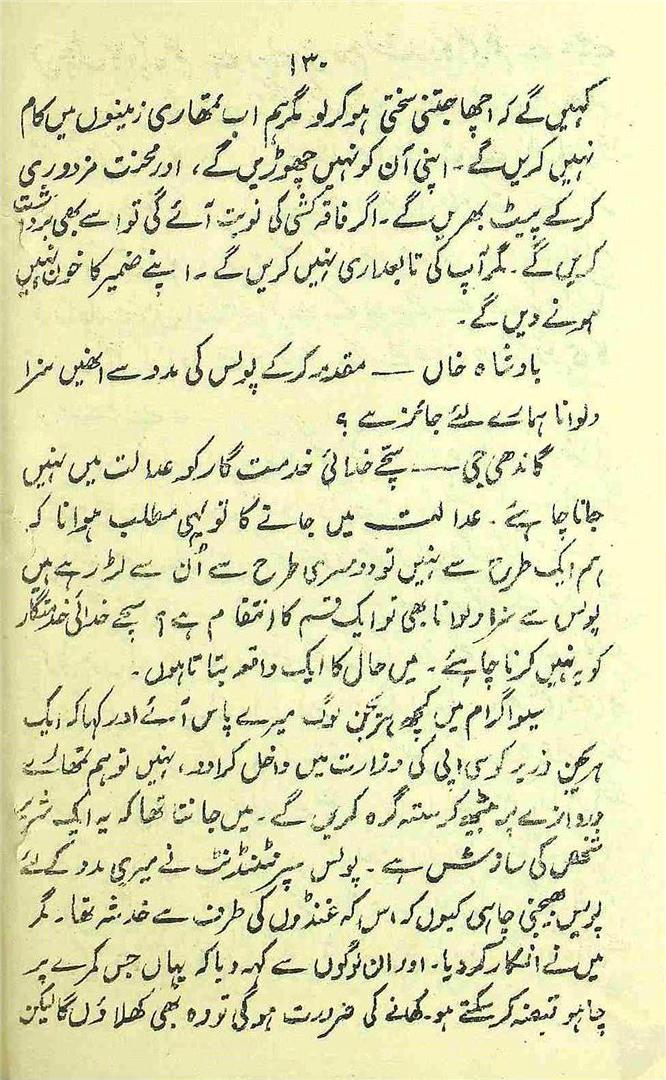 ۱۳۰
کہیں گے کہ اچھا جتنی سختی ہو کر لو مگر ہم اب تمھاری زمینوں میں کام
نہیں کریں گے۔ اپنی آن کو نہیں چھوڑیں گے، اور محنت مزدوری
کر کے پیٹ بھریں گے۔ اگر فاقہ کشی کی نوبت آئے گی تو اسے بھی برداشت
کریں گے۔ مگر آپ کی تابعداری نہیں کریں گے۔ اپنے ضمیر کا خون نہیں
ہونے دیں گے۔
بادشاہ خاں — مقدمہ کر کے پولس کی مدد سے انھیں سزا
دلوانا ہمارے لئے جائز ہے ؟
گاندھی جی — سچے خدائی خدمت گار کو عدالت میں نہیں
جانا چاہئے۔ عدالت میں جانے کا تو یہی مطلب ہوا نا کہ
ہم ایک طرح سے نہیں تو دوسری طرح سے اُن سے لڑ رہے ہیں
پولس سے سزا دلوانا بھی تو ایک قسم کا انتقام ہے؟ سچے خدائی خدمتگار
کو یہ نہیں کرنا چاہئے۔ میں حال کا ایک واقعہ بتاتا ہوں۔
سیواگرام میں کچھ ہریجن لوگ میرے پاس آئے اور کہا کہ ایک
ہریجن وزیر کو سی پی کی وزارت میں داخل کرا دو، نہیں تو ہم تمھارے
دروازے پر بیٹھ کر ستیہ گرہ کریں گے۔ میں جانتا تھا کہ یہ ایک شریر
شخص کی سازش ہے۔ پولس سپرنٹنڈنٹ نے میری مدد کے لئے
پولیس بھیجنی چاہی کیوں کہ اس کہ غنڈوں کی طرف سے خدشہ تھا۔ مگر
میں نے انکار کر دیا۔ اور ان لوگوں سے کہہ دیا کہ یہاں جس کمرے پر
چاہو قبضہ کر سکتے ہو۔ کھانے کی ضرورت ہوگی تو وہ بھی کھلاؤں گا لیکن